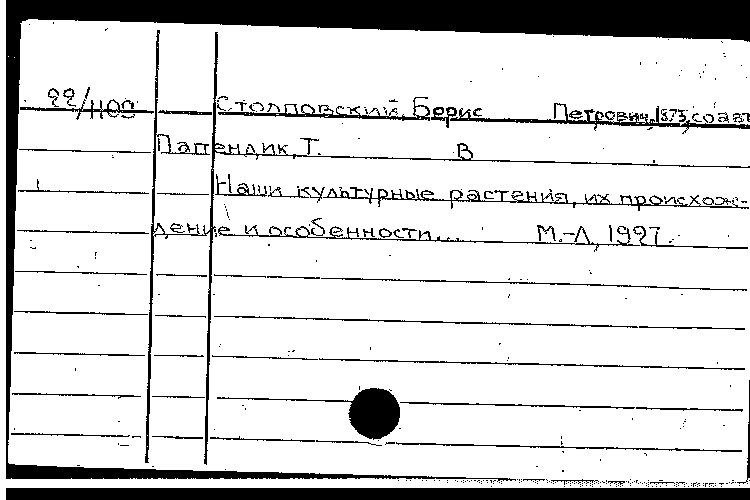 22/1109 Столповский, Борис Петрович, 1873, соавт
Паппендик, Т. В
Наши культурные растения, их происхож-
дение и особенности... М.-Л, 1927.